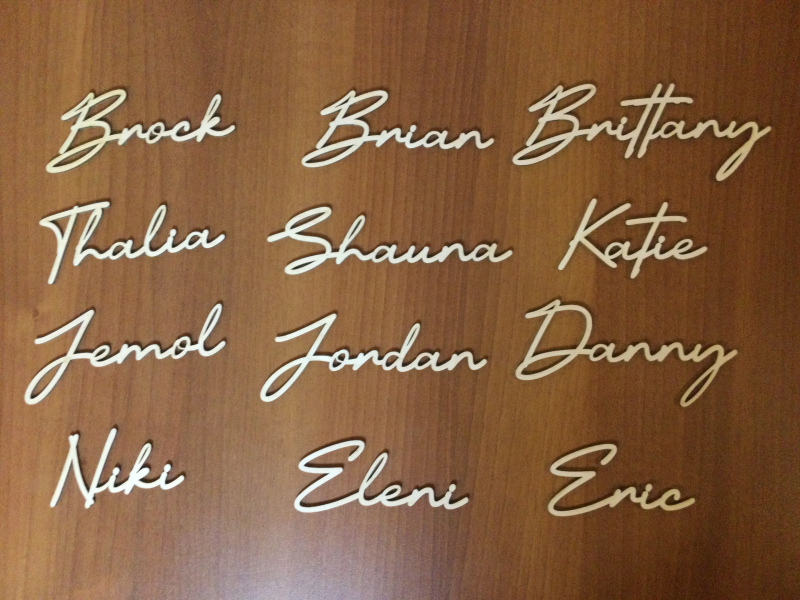 Brock Brian Brittany
Thalia Shauna Katie
Jemol Jordan Danny
Niki Eleni Eric